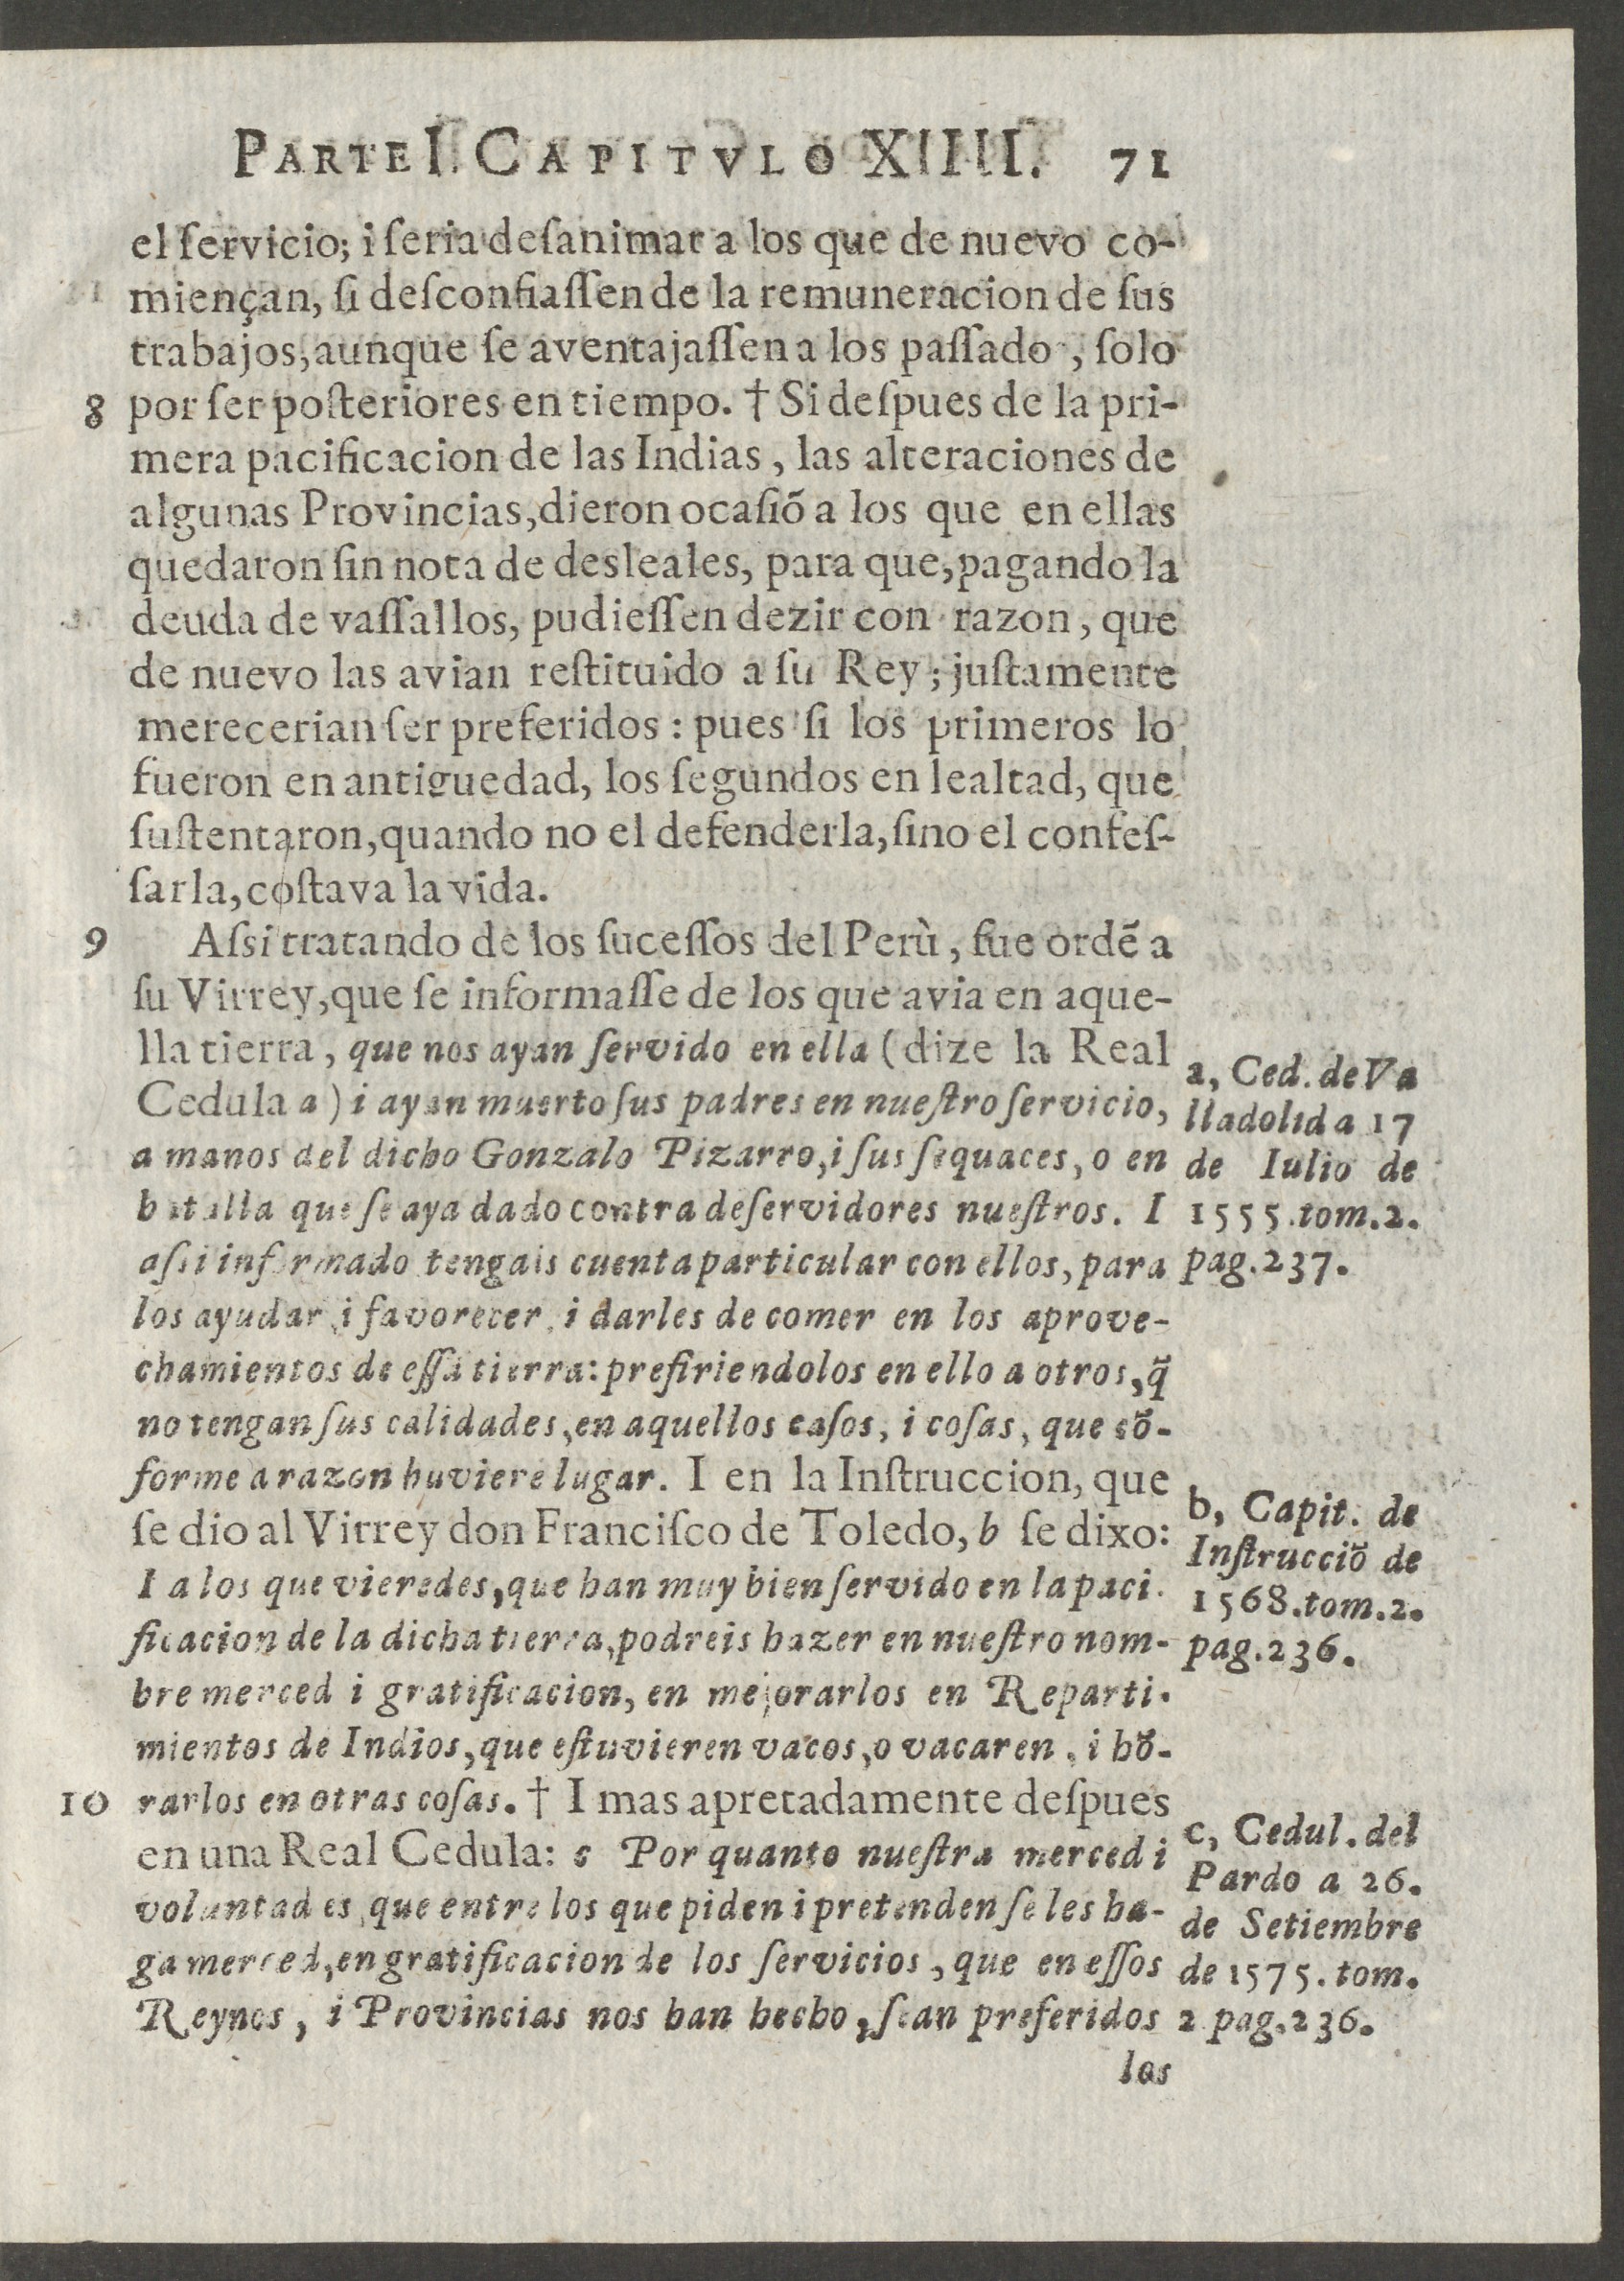 PARTE I. CAPITVLO XIIII. 71
el ſervicio; i ſeria deſanimar a los que de nuevo co-
miençan, ſi deſconfiaſſen de la remuneracion de ſus
trabajos, aunque ſe aventajaſſen a los paſſado , ſolo
8 por ſer poſteriores en tiempo. † Si deſpues de la pri-
mera pacificacion de las Indias, las alteraciones de
algunas Provincias, dieron ocaſiõ a los que en ellas
quedaron ſin nota de desleales, para que, pagando la
deuda de vaſſallos, pudieſſen dezir con razon, que
de nuevo las avian reſtituido a ſu Rey; juſtamente
merecerian ſer preferidos: pues ſi los primeros lo
fueron en antiguedad, los ſegundos en lealtad, que
ſuſtentaron, quando no el defenderla, ſino el confeſ-
ſarla, coſtava la vida.
9 Aſsi tratando de los ſuceſſos del Perù, fue ordẽ a
ſu Virrey, que ſe informaſſe de los que avia en aque-
lla tierra, que nos ayan ſervido en ella (dize la Real
Cedula a) i ayan muerto ſus padres en nueſtro ſervicio,
a manos del dicho Gonzalo Pizarro, i ſus ſequaces, o en
batalla que ſe aya dado contra deſervidores nueſtros. I
aſsi informado tengais cuenta particular con ellos, para
los ayudar, i favorecer, i darles de comer en los aprove-
chamientos de eſſa tierra: prefiriendolos en ello a otros, q̃
no tengan ſus calidades, en aquellos caſos, i coſas, que cõ-
forme a razon huviere lugar. I en la Inſtruccion, que
ſe dio al Virrey don Franciſco de Toledo, b ſe dixo:
I a los que vieredes, que han muy bien ſervido en la paci-
ficacion de la dicha tierra, podreis hazer en nueſtro nom-
bre merced i gratificacion, en mejorarlos en Reparti-
mientos de Indios, que eſtuvieren vacos, o vacaren, i hõ-
10 rarlos en otras coſas. † I mas apretadamente deſpues
en una Real Cedula: c Por quanto nueſtra merced i
voluntad es, que entre los que piden i pretenden ſe les ha-
ga merced, en gratificacion de los ſervicios, que en eſſos
Reynos, i Provincias nos han hecho, ſean preferidos
los
a, Ced. de Va
lladolid a 17
de Iulio de
1555. tom. 2.
pag. 237.
b, Capit. de
Inſtrucciõ de
1568. tom. 2.
pag. 236.
c, Cedul. del
Pardo a 26.
de Setiembre
de 1575. tom.
2 pag. 236.